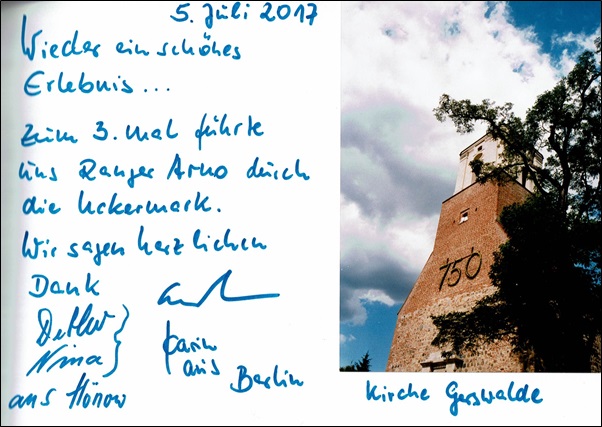 5. Juli 2017
Wieder ein schönes
Erlebnis...
Zum 3. mal führte
uns Ranger Arno durch
die Uckermark.
Wir sagen herzlichen
Dank
Detlev
Nina
aus Hönow
Karin
aus
Berlin
750
Kirche Gerswalde